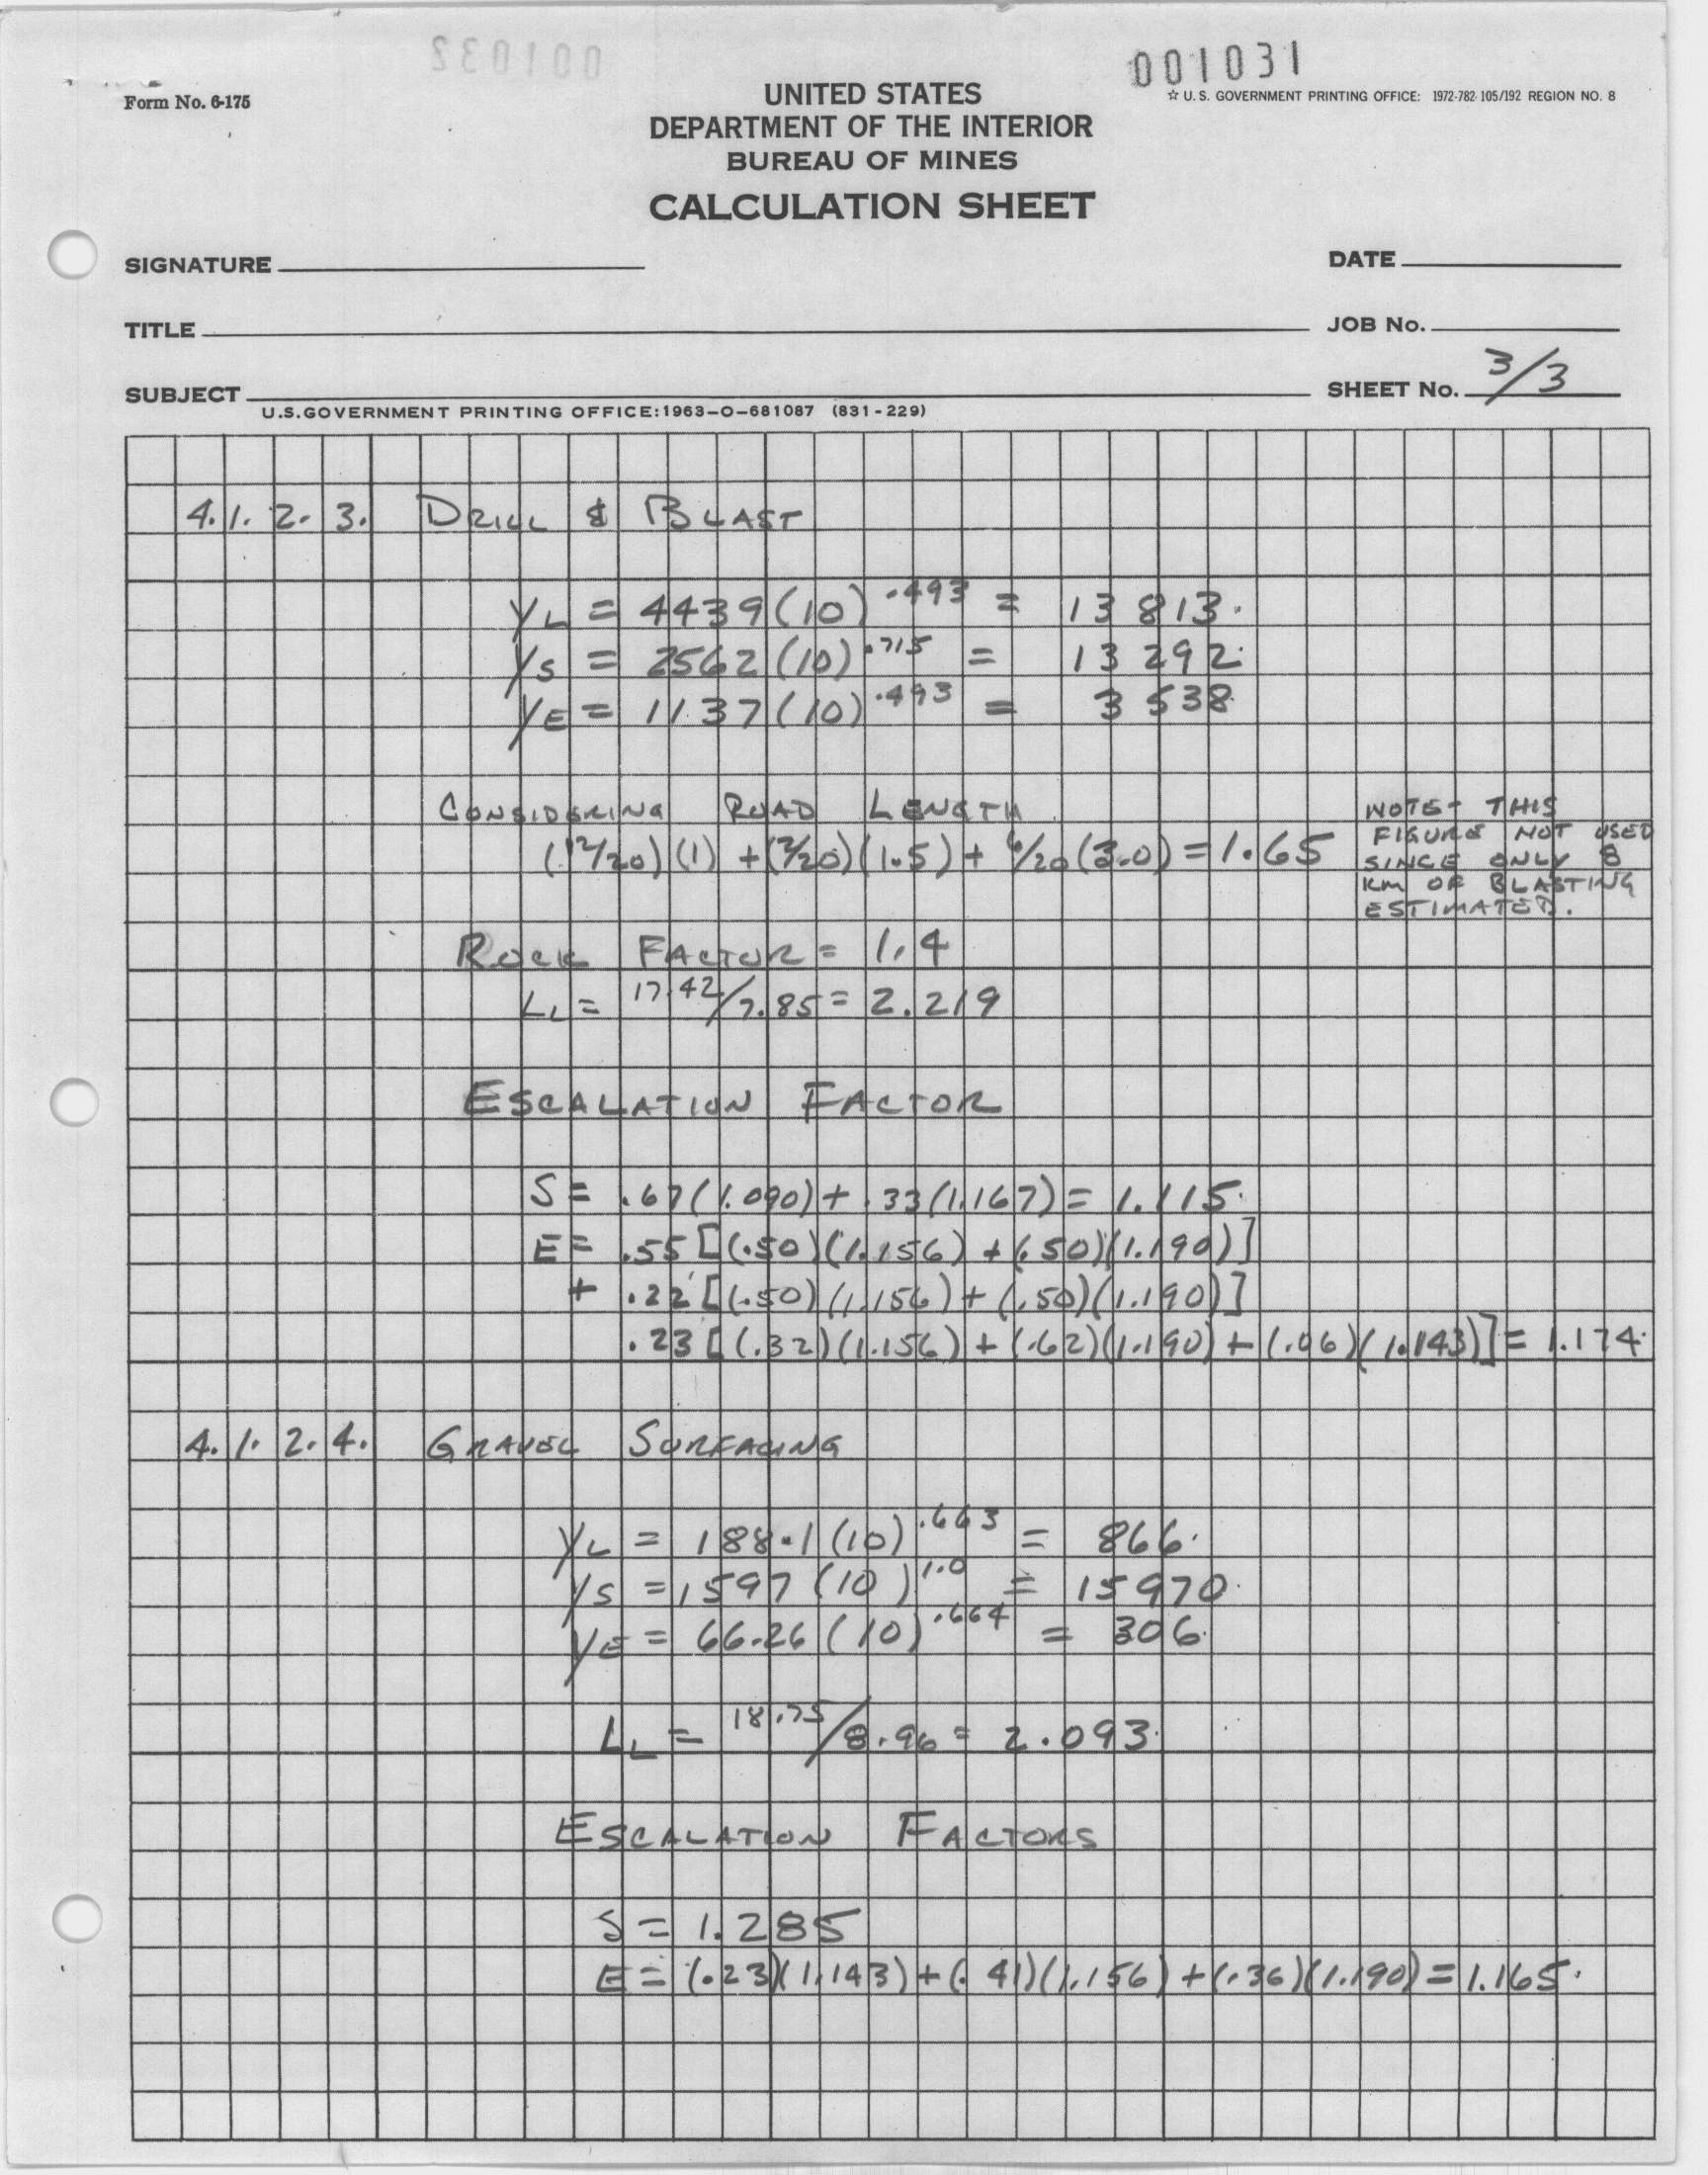 001032
001031
Form No. 6-175
UNITED STATES
☆ U. S. GOVERNMENT PRINTING OFFICE: 1972-782-105/192 REGION NO. 8
DEPARTMENT OF THE INTERIOR
BUREAU OF MINES
CALCULATION SHEET
SIGNATURE
DATE
TITLE
JOB No.
SUBJECT
SHEET No. 3/3
U.S.GOVERNMENT PRINTING OFFICE:1963-O-681087 (831-229)
4. 1. 2. 3. DRILL & BLAST
YL = 4439 (10)^.493 = 13 813.
YS = 2562 (10)^.715 = 13 292.
YE = 1137 (10)^.493 = 3 538.
CONSIDERING ROAD LENGTH
(12/20)(1) + (2/20)(1.5) + 6/20 (3.0) = 1.65
NOTE - THIS
FIGURE NOT USED
SINCE ONLY 8
KM OF BLASTING
ESTIMATED.
ROCK FACTOR = 1.4
LL = 17.42/7.85 = 2.219
ESCALATION FACTOR
S = .67(1.090) + .33(1.167) = 1.115.
E = .55 [(.50)(1.156) + (.50)(1.190)]
+ .22 [(.50)(1.156) + (.50)(1.190)]
.23 [(.32)(1.156) + (.62)(1.190) + (.06)(1.143)] = 1.174.
4. 1. 2. 4. GRAVEL SURFACING
YL = 188.1 (10)^.663 = 866.
YS = 1597 (10)^1.0 = 15970.
YE = 66.26 (10)^.664 = 306.
LL = 18.75/8.96 = 2.093.
ESCALATION FACTORS
S = 1.285
E = (.23)(1.143) + (.41)(1.156) + (.36)(1.190) = 1.165.